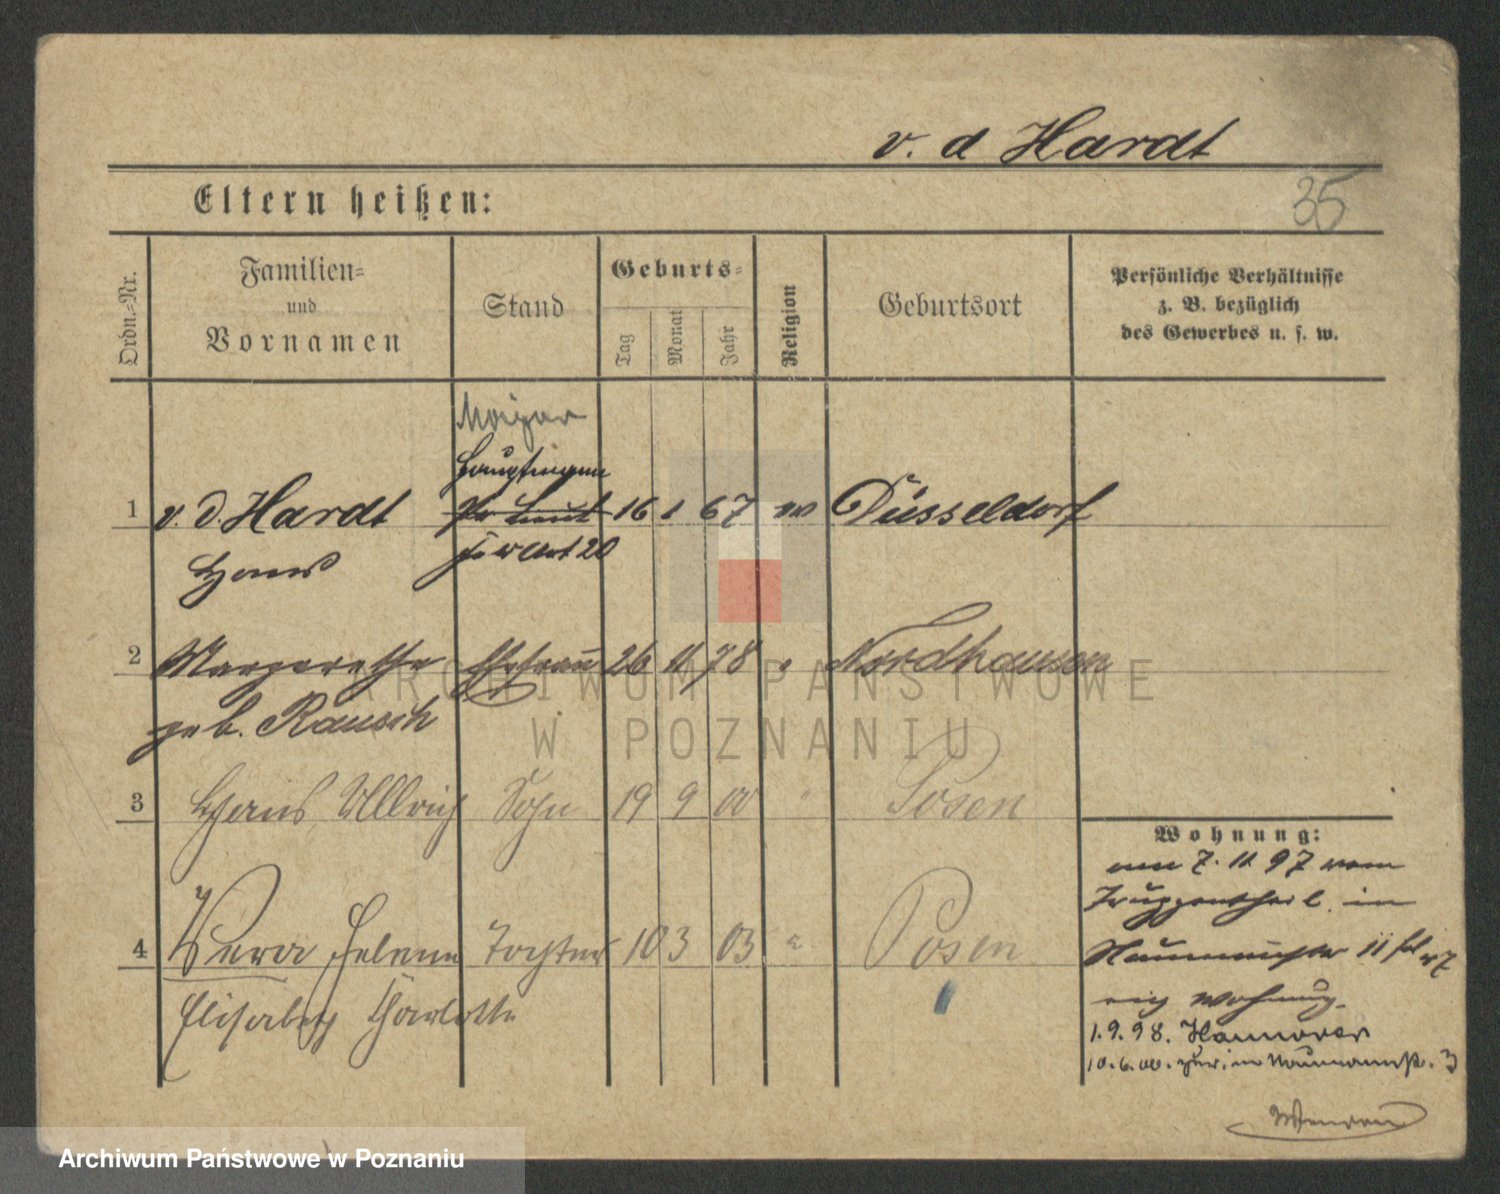 v. d Hardt
Eltern heißen:
35
Ordn.-Nr.
Familien-
und
Vornamen
Stand
Geburts-
Tag
Monat
Jahr
Religion
Geburtsort
Persönliche Verhältnisse
z. B. bezüglich
des Gewerbes u. s. w.
Major
Hauptmann
1 v. d. Hardt Pr Leut 16 1 67 ev Düsseldorf
Hans Art 20
2 Margarethe Ehefrau 26 11 78 " Nordhausen
geb. Rausch
3 Hans Ullrich Sohn 19 9 00 " Posen
Wohnung:
am 7. 11 97 vom
Truppentheil in
4 Vera Helene Tochter 10 3 03 " Posen
Naumannstr 11
Elisabeth Charlotte
Wohnung.
1. 9. 98. Hannover
10. 6. 00. zur. in Naumannstr. 3
ARCHIWUM PAŃSTWOWE
W POZNANIU
Archiwum Państwowe w Poznaniu